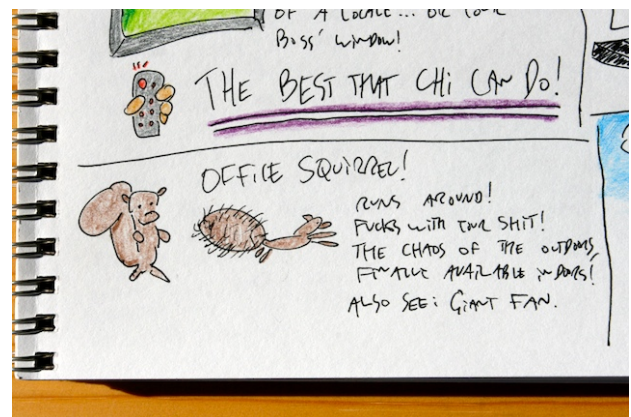 OF A LOCALE... OR YOUR
BOSS' WINDOW!
THE BEST THAT CHI CAN DO!
OFFICE SQUIRREL!
RUNS AROUND!
FUCKS WITH YOUR SHIT!
THE CHAOS OF THE OUTDOORS,
FINALLY AVAILABLE INDOORS!
ALSO SEE: GIANT FAN.